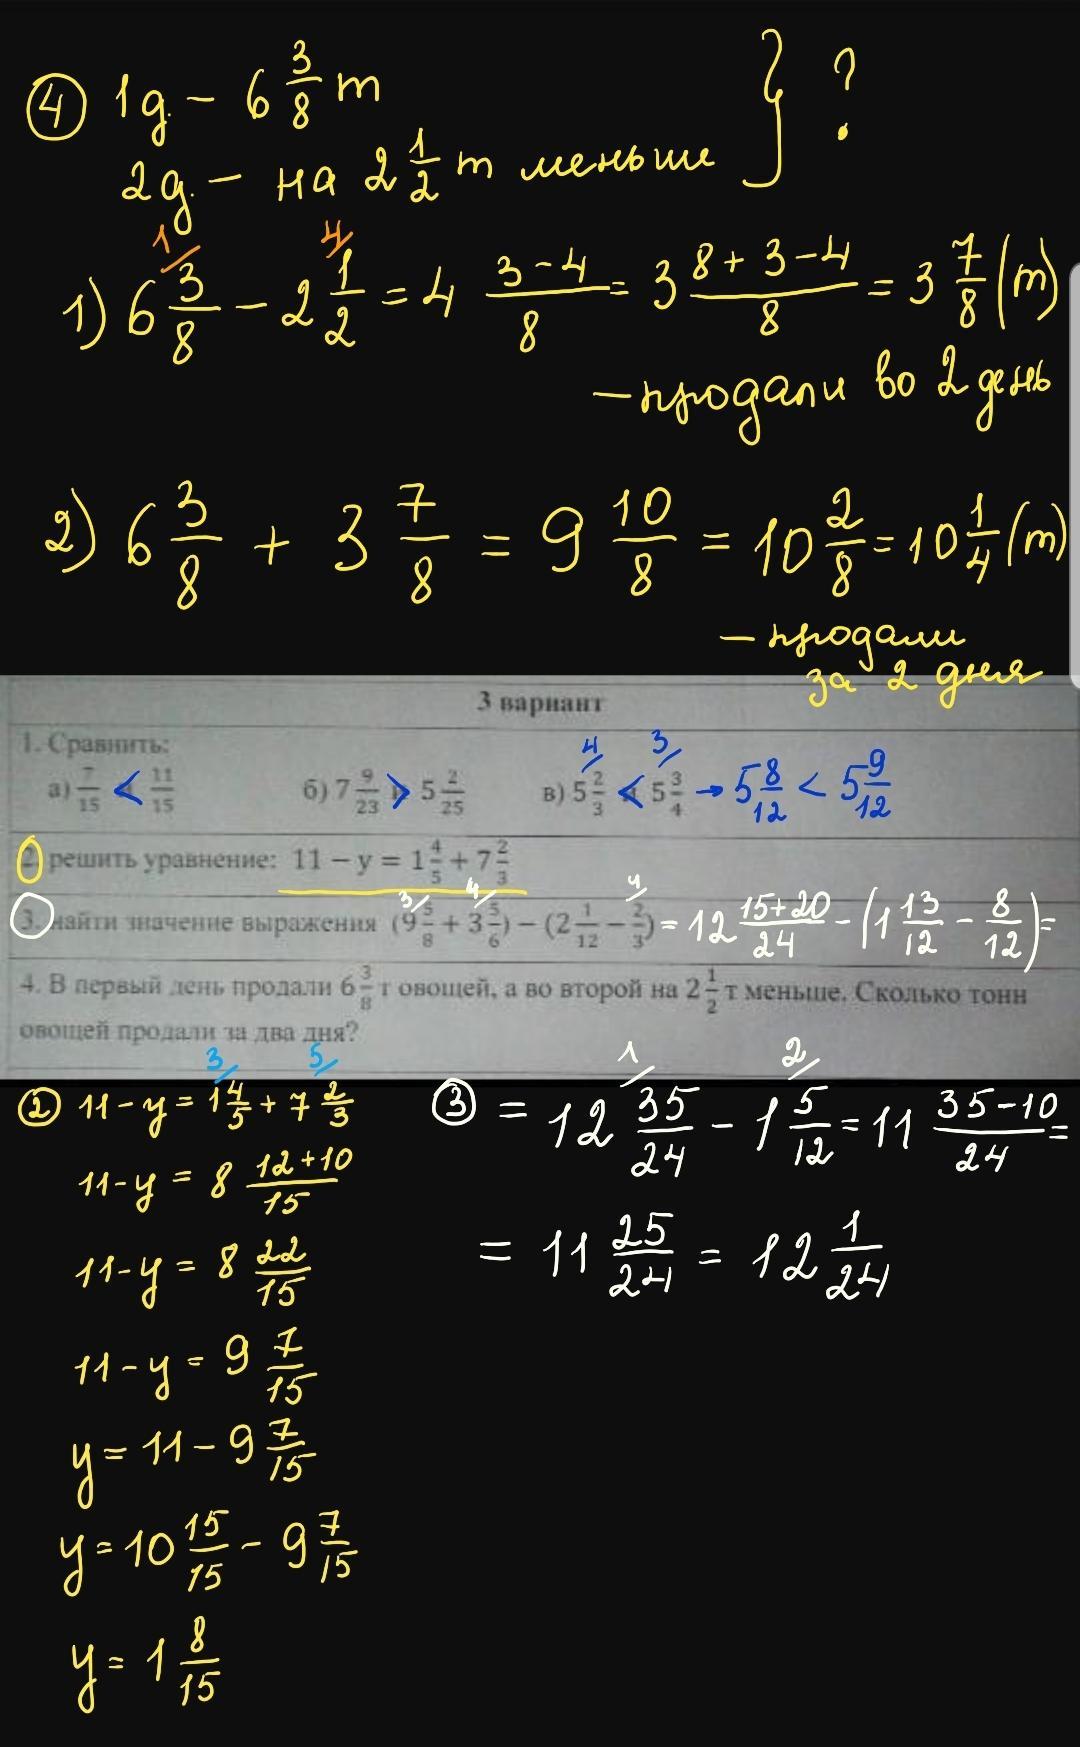 ④ 1д. – 6 3/8 т } ?
2д. – на 2 1/2 т меньше
1) 6 3/8 – 2 1/2 = 4 (3–4)/8 = 3 (8+3–4)/8 = 3 7/8 (т)
– продали во 2 день
2) 6 3/8 + 3 7/8 = 9 10/8 = 10 2/8 = 10 1/4 (т)
– продали
за 2 дня
3 вариант
1. Сравнить:
а) 7/15 < 11/15 б) 7 9/23 > 5 2/25 в) 5 2/3 < 5 3/4 → 5 8/12 < 5 9/12
2. решить уравнение: 11 – y = 1 4/5 + 7 2/3
3. найти значение выражения (9 5/8 + 3 5/6) – (2 1/12 – 2/3) = 12 (15+20)/24 – (1 13/12 – 8/12) =
4. В первый день продали 6 3/8 т овощей, а во второй на 2 1/2 т меньше. Сколько тонн
овощей продали за два дня?
② 11 – y = 1 4/5 + 7 2/3
11 – y = 8 (12+10)/15
11 – y = 8 22/15
11 – y = 9 7/15
y = 11 – 9 7/15
y = 10 15/15 – 9 7/15
y = 1 8/15
③ = 12 35/24 – 1 5/12 = 11 (35–10)/24 =
= 11 25/24 = 12 1/24